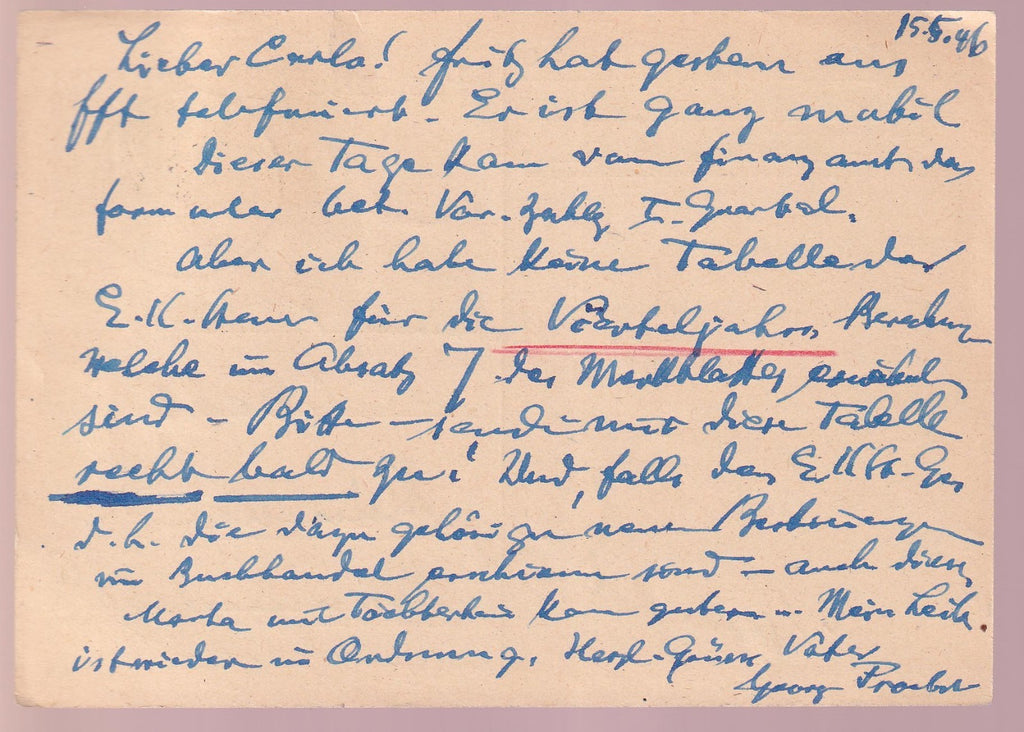 15.5.46
Lieber Carlo! Fritz hat gestern aus
Fft telefoniert. Er ist ganz mobil
Dieser Tage kam vom Finanzamt das
Formular betr. Vor-Zahlg I. Quartal.
Aber ich habe keine Tabelle der
E.K.Steuer für die Vierteljahrs Berechng
welche im Absatz 7 des Merkblattes erwähnt
sind - Bitte - sende mir diese Tabelle
recht bald zu! Und, falls das E.KSt-Ges
d.h. die dazu gehörigen neuen
im Buchhandel erschienen sind - auch diese
Marta mit Töchterlein kam gestern Mein
ist wieder in Ordnung. Herzl. Grüsse Vater
Georg